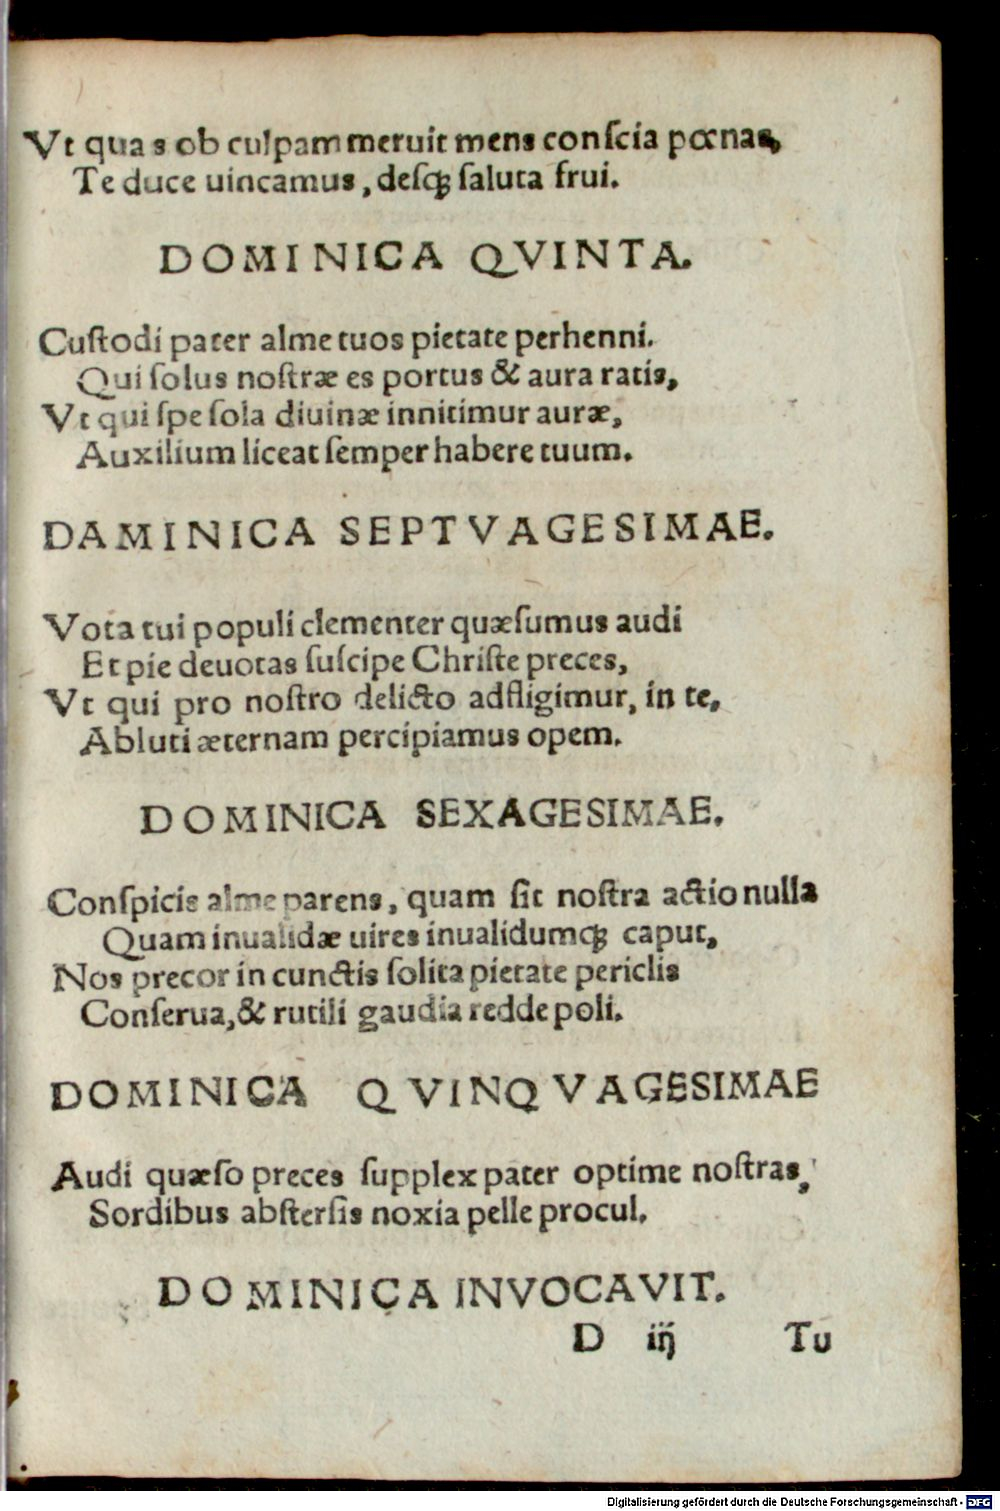 Vt qua s ob culpam meruit mens conſcia pœnas,
Te duce uincamus, deſqꝫ ſaluta frui.
DOMINICA QVINTA.
Cuſtodi pater alme tuos pietate perhenni.
Qui ſolus noſtræ es portus & aura ratis,
Vt qui ſpe ſola diuinæ innitimur auræ,
Auxilium liceat ſemper habere tuum.
DAMINICA SEPTVAGESIMAE.
Vota tui populi clementer quæſumus audi
Et pie deuotas ſuſcipe Chriſte preces,
Vt qui pro noſtro delicto adfligimur, in te,
Abluti æternam percipiamus opem.
DOMINICA SEXAGESIMAE.
Conſpicis alme parens, quam ſit noſtra actio nulla
Quam inualidæ uires inualidumqꝫ caput,
Nos precor in cunctis ſolita pietate periclis
Conſerua, & rutili gaudia redde poli.
DOMINICA QVINQVAGESIMAE
Audi quæſo preces ſupplex pater optime noſtras,
Sordibus abſterſis noxia pelle procul.
DOMINICA INVOCAVIT.
D iij Tu
Digitalisierung gefördert durch die Deutsche Forschungsgemeinschaft - DFG